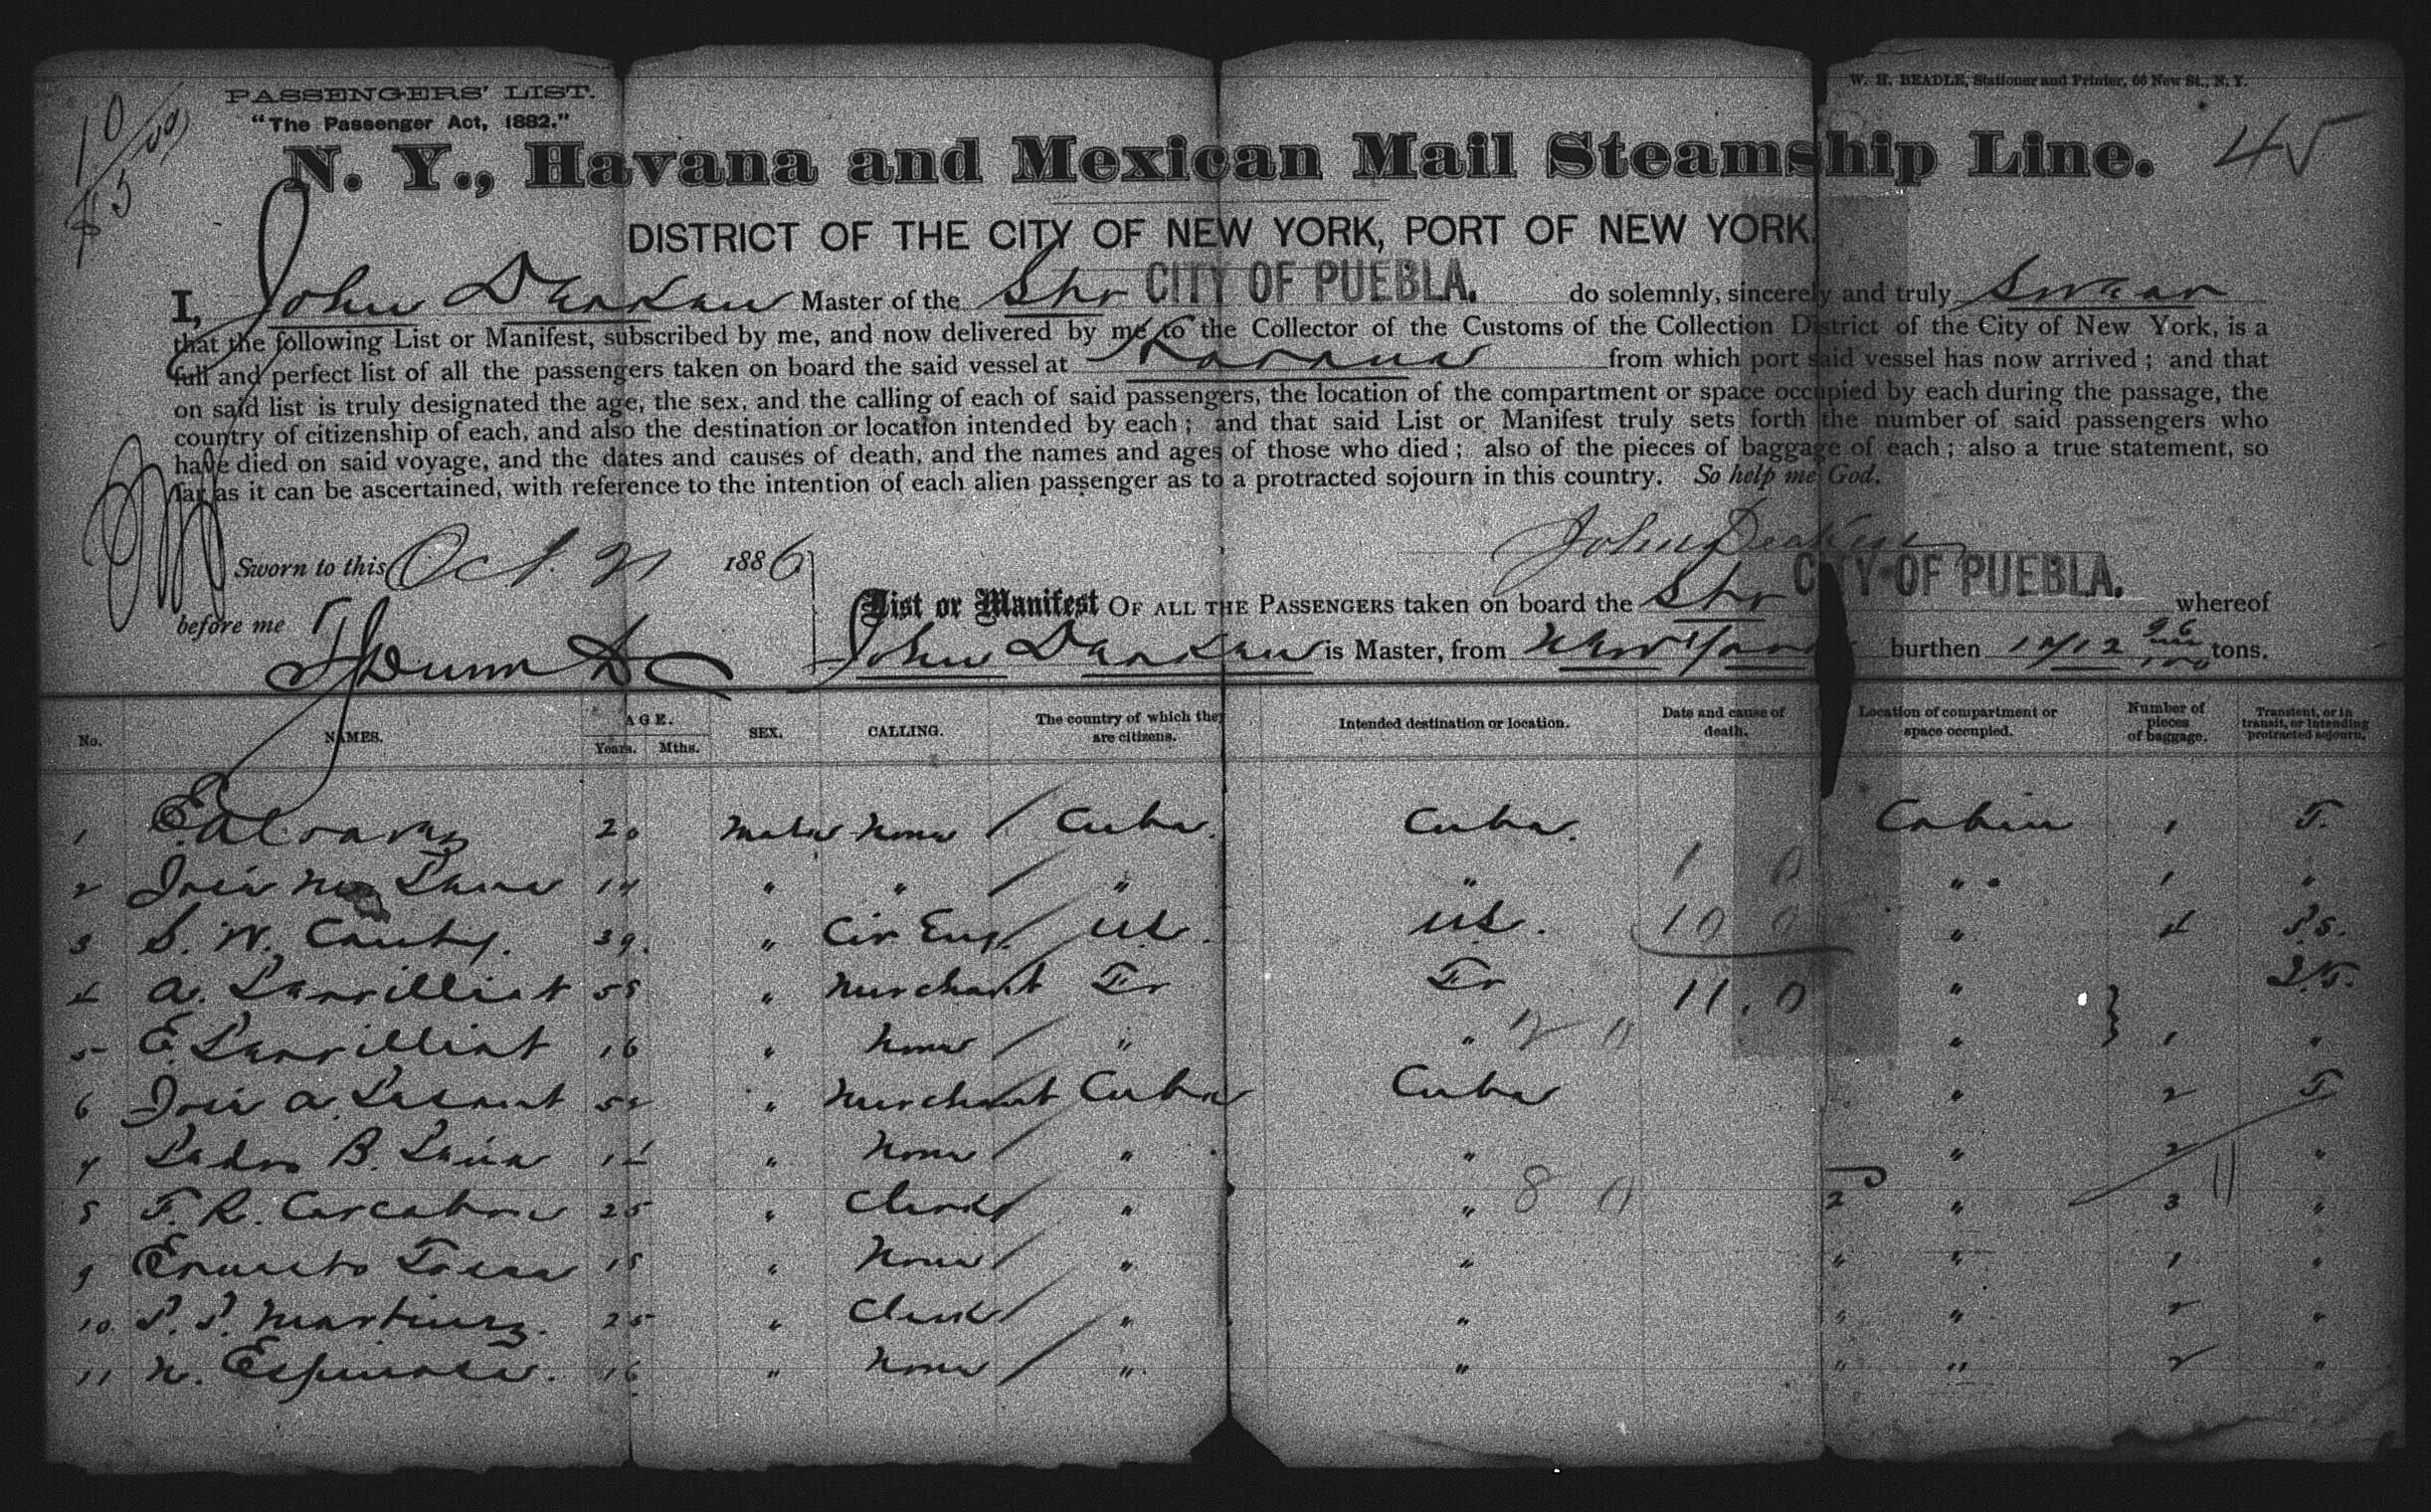 W. H. BEADLE, Stationer and Printer, 66 New St., N. Y.
PASSENGERS' LIST.
"The Passenger Act, 1882."
45
N. Y., Havana and Mexican Mail Steamship Line.
DISTRICT OF THE CITY OF NEW YORK, PORT OF NEW YORK.
I, John Deaken Master of the Str CITY OF PUEBLA. do solemnly, sincerely and truly Swear
that the following List or Manifest, subscribed by me, and now delivered by me to the Collector of the Customs of the Collection District of the City of New York, is a
full and perfect list of all the passengers taken on board the said vessel at Havana from which port said vessel has now arrived; and that
on said list is truly designated the age, the sex, and the calling of each of said passengers, the location of the compartment or space occupied by each during the passage, the
country of citizenship of each, and also the destination or location intended by each; and that said List or Manifest truly sets forth the number of said passengers who
have died on said voyage, and the dates and causes of death, and the names and ages of those who died; also of the pieces of baggage of each; also a true statement, so
far as it can be ascertained, with reference to the intention of each alien passenger as to a protracted sojourn in this country. So help me God.
John Deaken
Sworn to this Oct. 21 1886
before me
List or Manifest OF ALL THE PASSENGERS taken on board the Str CITY OF PUEBLA. whereof
John Deaken is Master, from New York burthen tons.
No. NAMES. AGE. Years. Mths. SEX. CALLING. The country of which they are citizens. Intended destination or location. Date and cause of death. Location of compartment or space occupied. Number of pieces of baggage. Transient, or in transit, or intending protracted sojourn.
1 20 Male None Cuba. Cuba. Cabin 1 T.
2 " " " " " 1 "
3 S. W. 39. " Civ Eng. U.S. U.S. " 4 P.S.
4 A. " Merchant Fr Fr "
5 E. 16 " None " " " 1 "
6 José A. " Merchant Cuba Cuba " 2 T
7 Pedro B. " None " " " 2 "
8 F. R. 25 " Clerk " " 2 " 3 "
9 Ernesto " None " " " " 1 "
10. P. P. Martinez. 25 " Clerk " " " " 2 "
11 N. Espinosa. 16 " None " " " " 2 "